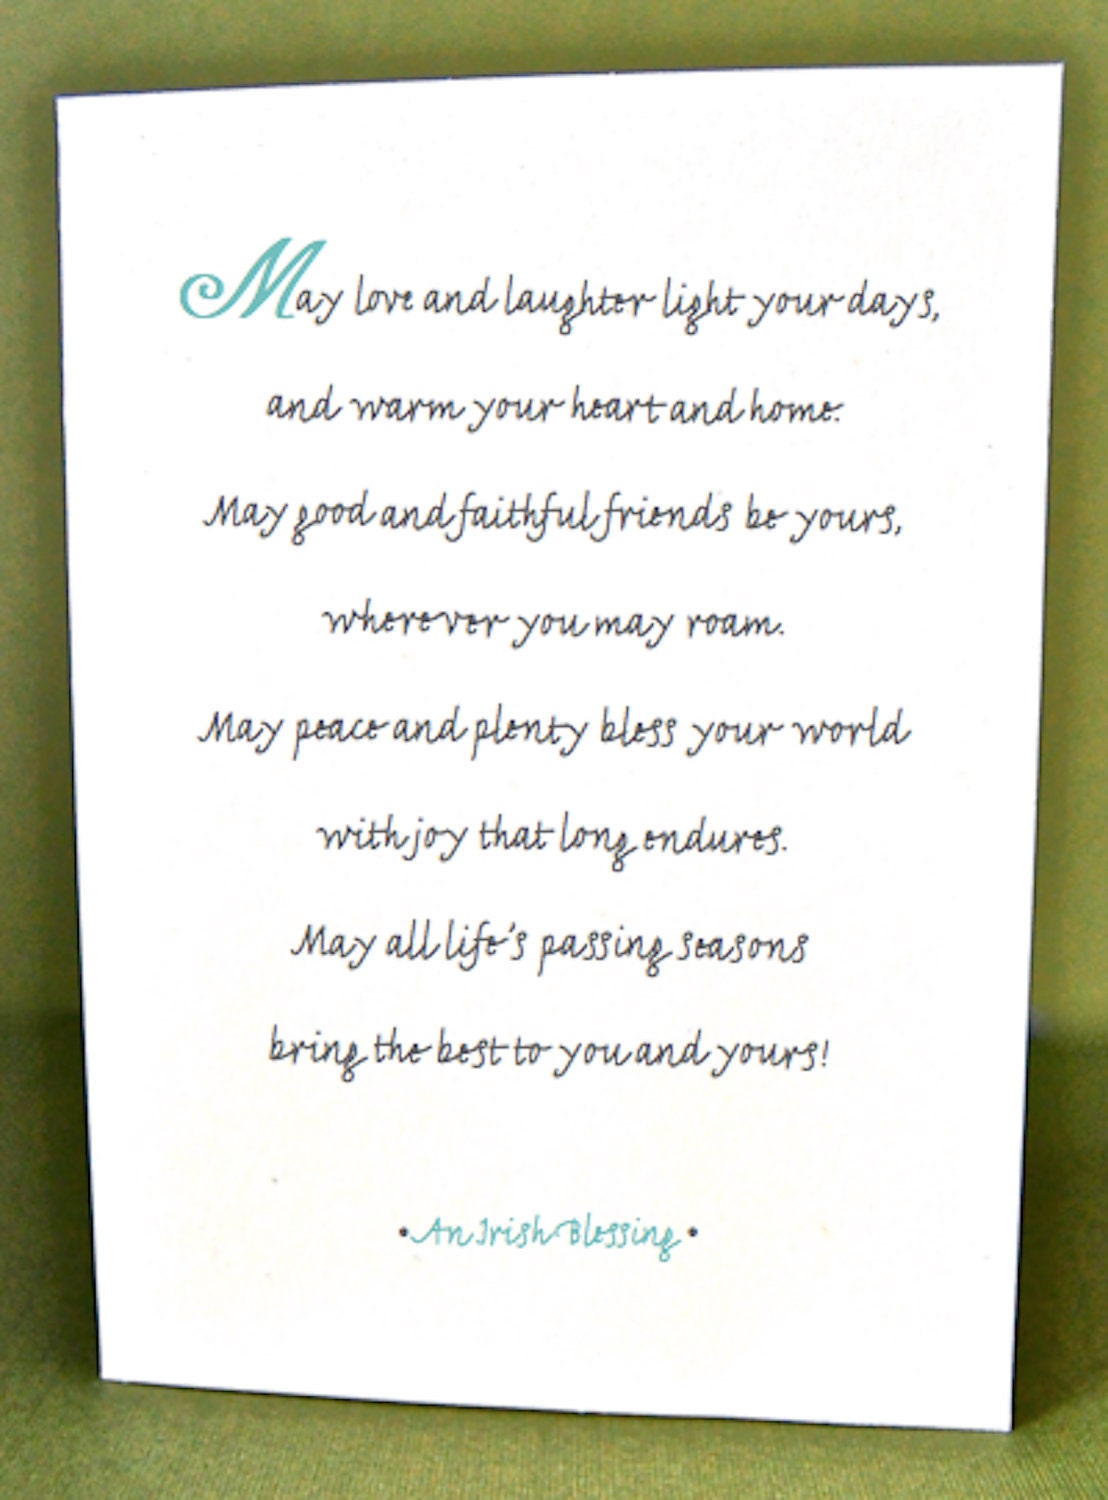 May love and laughter light your days,
and warm your heart and home.
May good and faithful friends be yours,
wherever you may roam.
May peace and plenty bless your world
with joy that long endures.
May all life's passing seasons
bring the best to you and yours!
• An Irish Blessing •